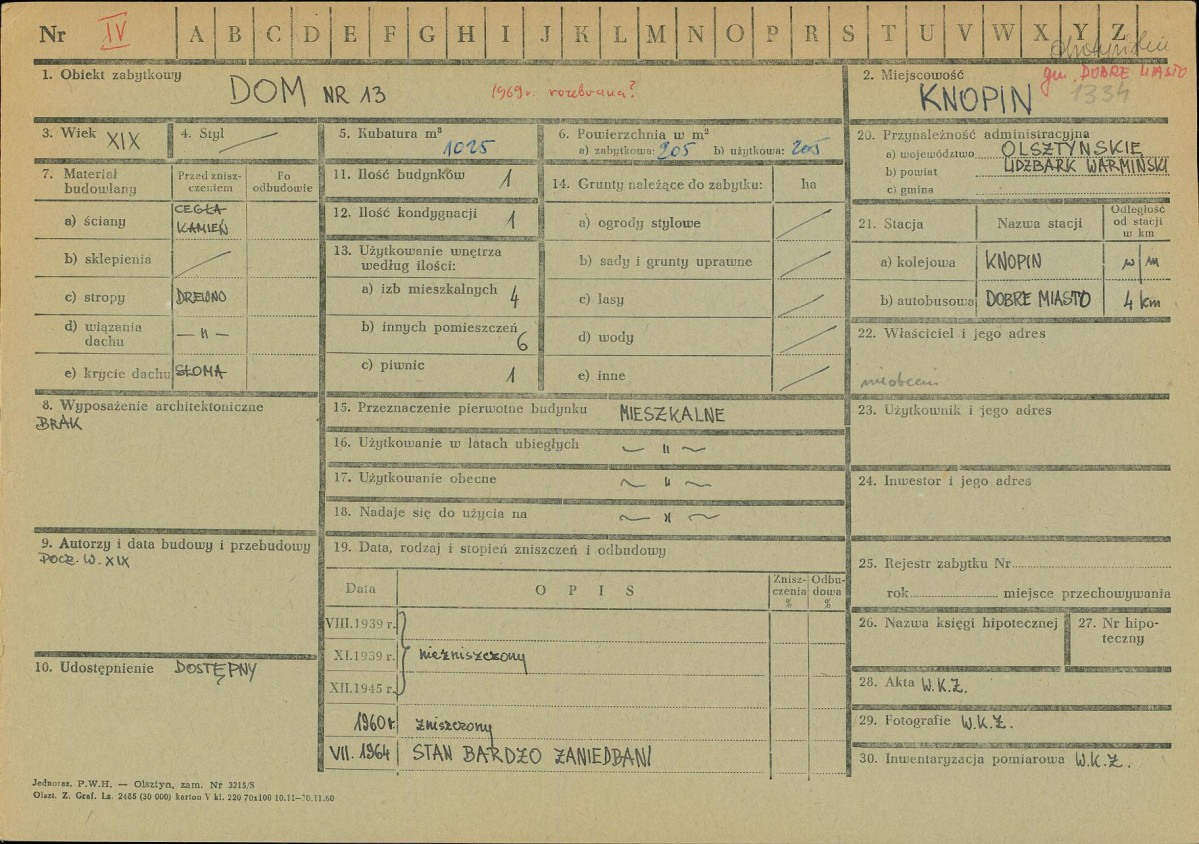 Nr IV A B C D E F G H I J K L M N O P R S T U V W X Y Z
1. Obiekt zabytkowy
DOM NR 13
1969 r. rozebrana?
2. Miejscowość
gm. DOBRE MIASTO
KNOPIN
1334
3. Wiek XIX
4. Styl
5. Kubatura m³
1025
6. Powierzchnia w m²
a) zabytkowa: 205 b) użytkowa: 205
20. Przynależność administracyjna
a) województwo OLSZTYŃSKIE
b) powiat LIDZBARK WARMIŃSKI
c) gmina
7. Materiał budowlany
Przed zniszczeniem
Po odbudowie
a) ściany CEGŁA KAMIEŃ
b) sklepienia
c) stropy DREWNO
d) wiązania dachu — " —
e) krycie dachu SŁOMA
11. Ilość budynków 1
12. Ilość kondygnacji 1
13. Użytkowanie wnętrza według ilości:
a) izb mieszkalnych 4
b) innych pomieszczeń 6
c) piwnic 1
14. Grunty należące do zabytku: ha
a) ogrody stylowe
b) sady i grunty uprawne
c) lasy
d) wody
e) inne
21. Stacja Nazwa stacji Odległość od stacji w km
a) kolejowa KNOPIN w/m
b) autobusowa DOBRE MIASTO 4 km
22. Właściciel i jego adres
8. Wyposażenie architektoniczne
BRAK
15. Przeznaczenie pierwotne budynku MIESZKALNE
16. Użytkowanie w latach ubiegłych ~ " ~
17. Użytkowanie obecne ~ " ~
18. Nadaje się do użycia na ~ " ~
23. Użytkownik i jego adres
24. Inwestor i jego adres
9. Autorzy i data budowy i przebudowy
POCZ. W. XIX
19. Data, rodzaj i stopień zniszczeń i odbudowy
Data OPIS Zniszczenia % Odbudowa %
VIII.1939 r.
XI.1939 r. niezniszczony
XII.1945 r.
1960 r. zniszczony
VII. 1964 STAN BARDZO ZANIEDBANI
25. Rejestr zabytku Nr
rok miejsce przechowywania
26. Nazwa księgi hipotecznej
27. Nr hipoteczny
10. Udostępnienie DOSTĘPNY
28. Akta W.K.Z.
29. Fotografie W.K.Z.
30. Inwentaryzacja pomiarowa W.K.Z.
Jednoraz. P.W.H. — Olsztyn, zam. Nr 3215/S
Olszt. Z. Graf. Lz. 2485 (30 000) karton V kl. 220 70x100 10.11—30.11.60